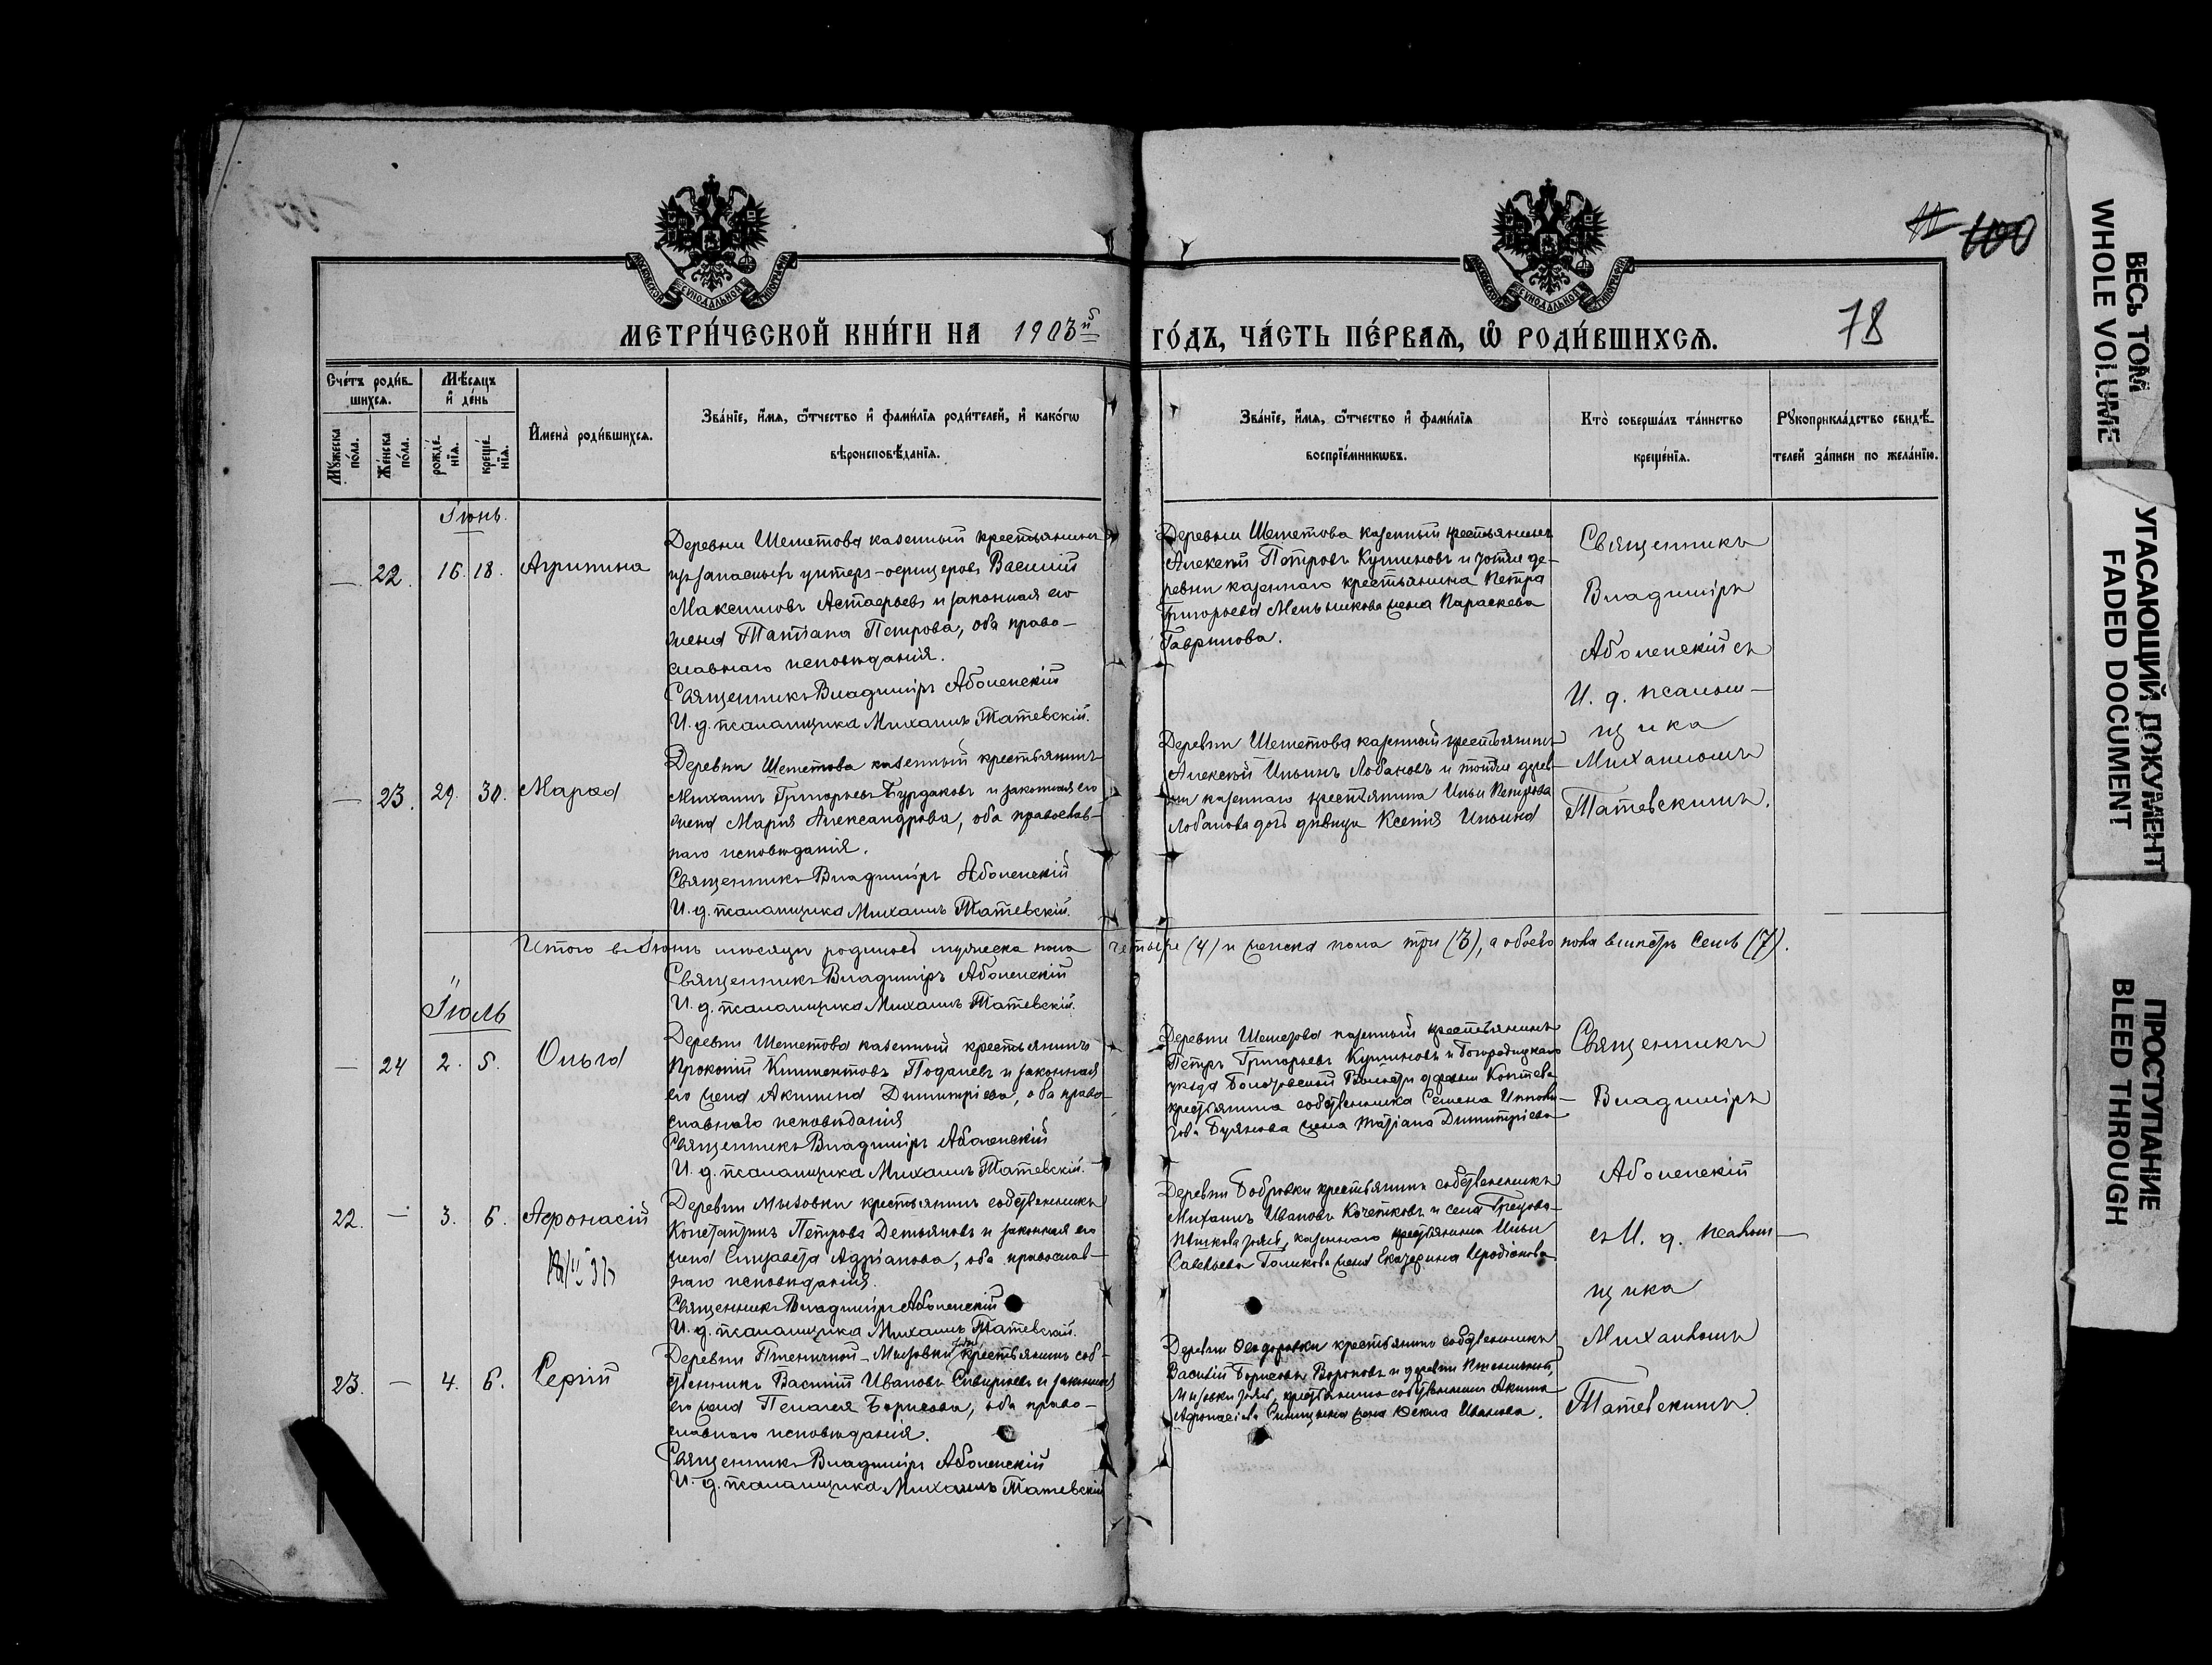 ВЕСЬ ТОМ
WHOLE VOLUME
УГАСАЮЩИЙ ДОКУМЕНТ
FADED DOCUMENT
ПРОСТУПАНИЕ
BLEED THROUGH
100
78
МОСКОВСКОЙ СѴНОДАЛЬНОЙ ТИПОГРАФІИ
МОСКОВСКОЙ СѴНОДАЛЬНОЙ ТИПОГРАФІИ
МЕТРИ́ЧЕСКОЙ КНИ́ГИ НА 1903й ГО́ДЪ, ЧА́СТЬ ПЕ́РВАѦ, Ѽ РОДИ́ВШИХСѦ.
Сче́тъ роди́в-
шихсѧ.
Мꙋ́жеска по́ла.
Же́нска по́ла.
Мѣ́сѧцъ и҆ де́нь
рожде́-
нїѧ.
креще́-
нїѧ.
И҆мена̀ роди́вшихсѧ.
Зва́нїе, и҆́мѧ, ѻ҆́тчество и҆ фами́лїѧ роди́телей, и҆ како́гѡ
вѣроисповѣ́данїѧ.
Зва́нїе, и҆́мѧ, ѻ҆́тчество и҆ фами́лїѧ
воспрїе́мникѡвъ.
Кто̀ соверша́лъ та́инство
креще́нїѧ.
Рꙋкоприкла́дство свидѣ́-
телей за́писи по жела́нїю.
Іюнь.
— 22. 16. 18. Агрипина
Деревни Шеметова казенный крестьянинъ
изъ запасныхъ унтеръ-офицеровъ Василій
Максимовъ Астафьевъ и законная его
жена Татіана Петрова, оба право-
славнаго исповѣданія.
Священникъ Владиміръ Аболенскій
И. д. псаломщика Михаилъ Татевскій.
Деревни Шеметова казенный крестьянинъ
Алексѣй Петровъ Кушиновъ и той же де-
ревни казеннаго крестьянина Петра
Григорьева Меньшикова жена Параскева
Гаврилова.
Священникъ
Владиміръ
Аболенскій съ
И. д. псалом-
щика
Михаиломъ
Татевскимъ.
— 23. 29. 30. Мареа
Деревни Шеметова казенный крестьянинъ
Михаилъ Григорьевъ Бурдаковъ и законная его
жена Марія Александрова, оба православ-
наго исповѣданія.
Священникъ Владиміръ Аболенскій
И. д. псаломщика Михаилъ Татевскій.
Деревни Шеметова казенный крестьянинъ
Алексѣй Ильинъ Лобановъ и той же дерев-
ни казеннаго крестьянина Ильи Петрова
Лобанова дочь дѣвица Ксенія Ильина
Итого въ Іюнѣ мѣсяцѣ родилось мужеска пола четыре (4) и женска пола три (3), а обоего пола вмѣстѣ семь (7).
Священникъ Владиміръ Аболенскій
И. д. псаломщика Михаилъ Татевскій.
Іюль
— 24 2. 5. Ольга
Деревни Шеметова казенный крестьянинъ
Прокопій Климентовъ Подалевъ и законная
его жена Акилина Димитріева, оба право-
славнаго исповѣданія
Священникъ Владиміръ Аболенскій
И. д. псаломщика Михаилъ Татевскій.
Деревни Шеметова казенный крестьянинъ
Петръ Григорьевъ Кушиновъ и Богородицкаго
уѣзда Волости деревни
крестьянина собственника Семена
жена Татіана Димитріева
Священникъ
Владиміръ
Аболенскій
съ И. д. псалом-
щика
Михаиломъ
Татевскимъ.
22. — 3. 6. Афонасій
Деревни Мызовки крестьянинъ собственникъ
Константинъ Петровъ Демьяновъ и законная его
жена Елизавета Адріанова, оба православ-
наго исповѣданія.
Священникъ Владиміръ Аболенскій
И. д. псаломщика Михаилъ Татевскій.
Деревни Бобровки крестьянинъ собственникъ
Михаилъ Ивановъ Кочетковъ и села
казеннаго крестьянина Ильи
Савельева Голикова жена Екатерина Иродіонова
23. — 4. 6. Сергій
Деревни Пшеничной-Мызовки крестьянинъ соб-
ственникъ Василій Ивановъ и законная
его жена Пелагея Борисова, оба право-
славнаго исповѣданія.
Священникъ Владиміръ Аболенскій
И. д. псаломщика Михаилъ Татевскій
Деревни Ѳедоровки крестьянинъ собственникъ
Василій Борисовъ Вороновъ и деревни Пшеничной,
Мызовки крестьянина собственника Акима
Афонасіева Синицына жена Ѳекла Иванова.